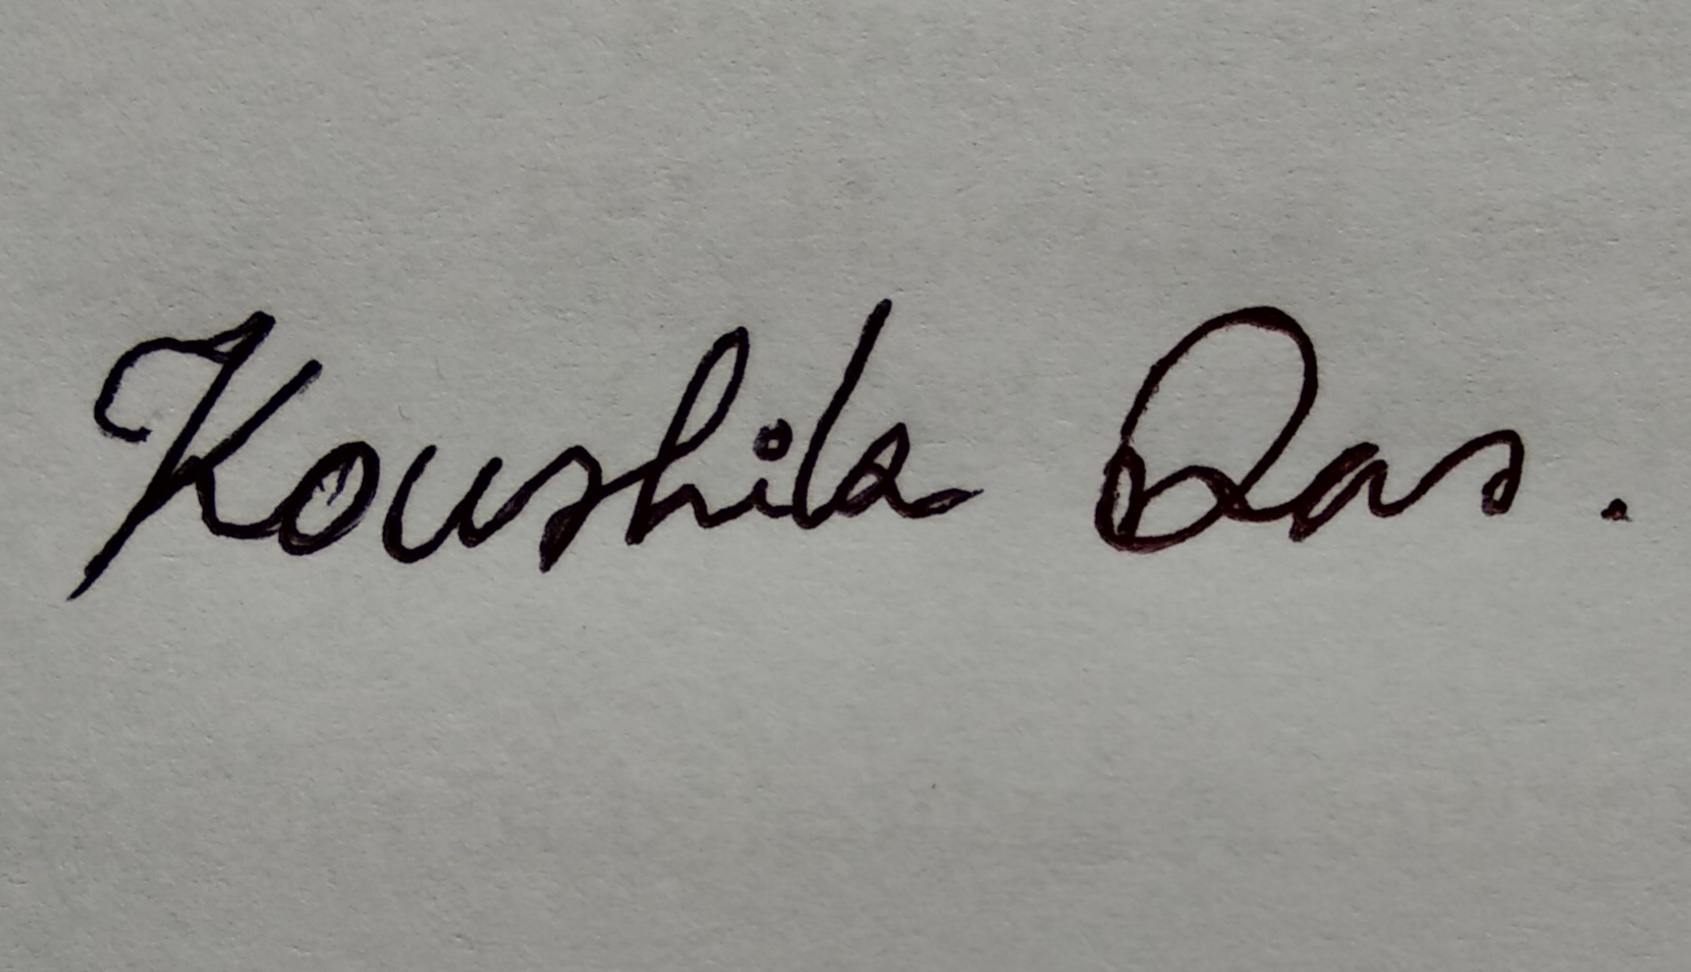 Koushila Das.